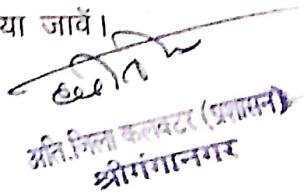 या जावें।
अति.जिला कलक्टर (प्रशासन)
श्रीगंगानगर